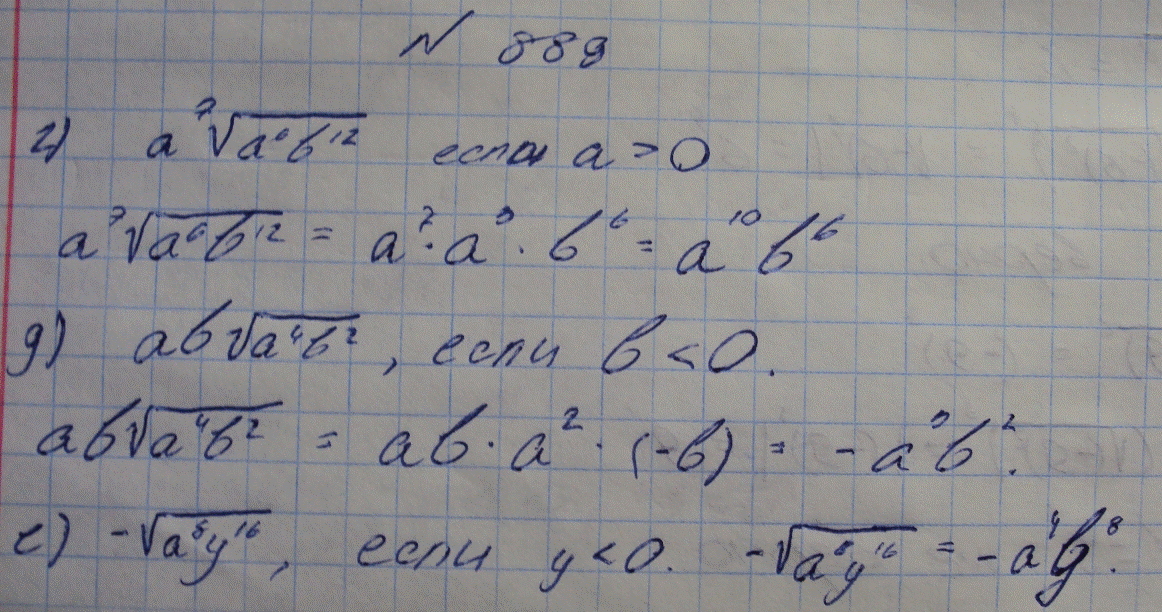 N 889
г) a⁷√a⁶b¹² если a > 0
a⁷√a⁶b¹² = a⁷ · a³ · b⁶ = a¹⁰b⁶
д) ab√a⁴b², если b < 0.
ab√a⁴b² = ab · a² · (-b) = -a³b².
е) -√a⁸y¹⁶, если y < 0. -√a⁸y¹⁶ = -a⁴y⁸.